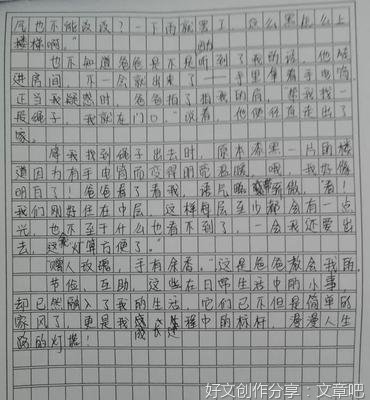 风也不能改改？一下雨就黑了，这么黑怎么上
楼梯啊。"
也不知道爸爸是不是听到了我的话，他走
进房间，不一会就出来了——手里拿着手电筒
正当我疑惑时，爸爸拍了拍我的肩，"帮我找一
段绳子，我就在门口。"说着，他便径直走出了
家。
等我找到绳子出去时，原本漆黑一片的楼
道因为有手电筒而变得明亮温暖。哦，我好像
明白了！爸爸看了看我，语气略带骄傲，"看！
我们刚好住在中层，这样每层至少都会有一点
光，也不至于什么也看不到了，一会我还要出
去，这灯算方便了。"
"赠人玫瑰，手有余香。"这是爸爸教会我的。
节俭、互助，这些在日常生活中的小事，
却已然融入了我的生活，它们已不但是简单的
家风了，更是我成长过程中的标杆，漫漫人生
路的灯塔！
好文创作分享：文章吧